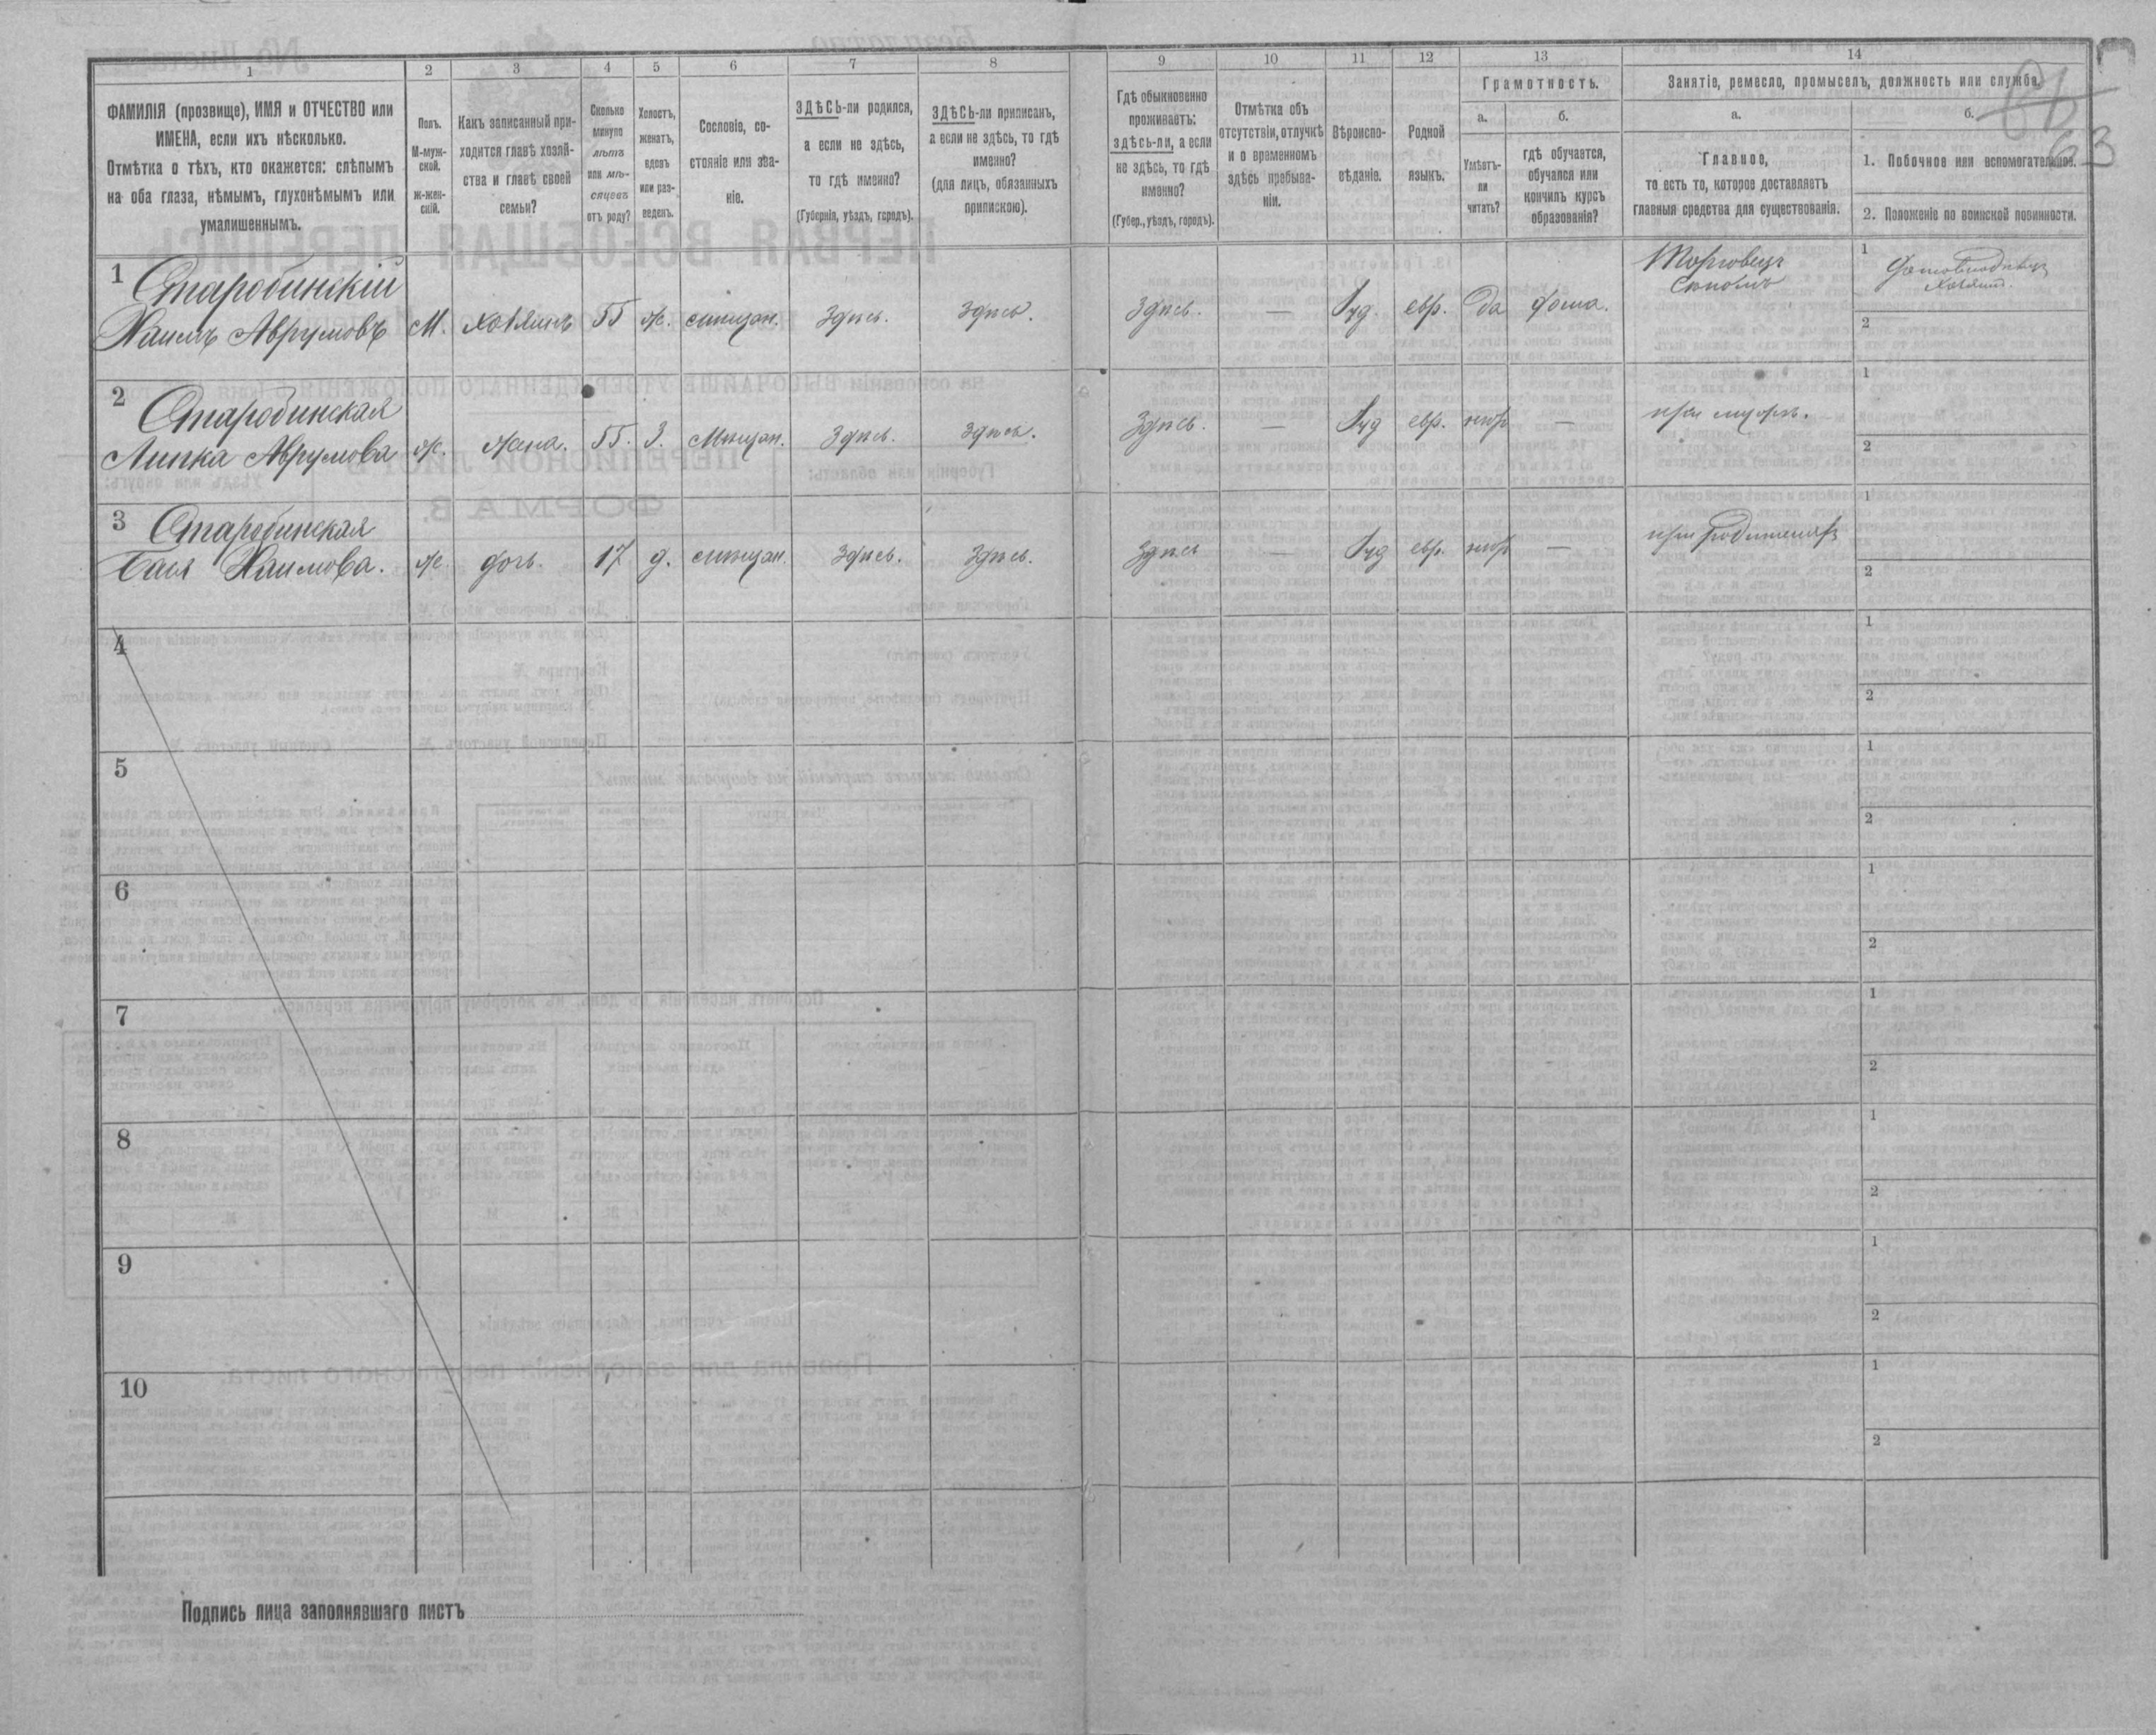 1
2
3
4
5
6
7
8
9
10
11
12
13
14
ФАМИЛІЯ (прозвище), ИМЯ и ОТЧЕСТВО или
ИМЕНА, если ихъ нѣсколько.
Отмѣтка о тѣхъ, кто окажется: слѣпымъ
на оба глаза, нѣмымъ, глухонѣмымъ или
умалишеннымъ.
Полъ.
М-муж-
ской.
ж-жен-
скій.
Какъ записанный при-
ходится главѣ хозяй-
ства и главѣ своей
семьи?
Сколько
минуло
лѣтъ
или мѣ-
сяцевъ
отъ роду?
Холостъ,
женатъ,
вдовъ
или раз-
веденъ.
Сословіе, со-
стояніе или зва-
ніе.
ЗДѢСЬ-ли родился,
а если не здѣсь,
то гдѣ именно?
(Губернія, уѣздъ, городъ).
ЗДѢСЬ-ли приписанъ,
а если не здѣсь, то гдѣ
именно?
(для лицъ, обязанныхъ
припискою).
Гдѣ обыкновенно
проживаетъ:
здѣсь-ли, а если
не здѣсь, то гдѣ
именно?
(Губер., уѣздъ, городъ).
Отмѣтка объ
отсутствіи, отлучкѣ
и о временномъ
здѣсь пребыва-
ніи.
Вѣроиспо-
вѣданіе.
Родной
языкъ.
Грамотность.
а.
Умѣетъ-
ли
читать?
б.
гдѣ обучается,
обучался или
кончилъ курсъ
образованія?
Занятіе, ремесло, промыселъ, должность или служба.
а.
Главное,
то есть то, которое доставляетъ
главныя средства для существованія.
б.
1. Побочное или вспомогательное.
2. Положеніе по воинской повинности.
63
1 Старобинскій
Хаимъ Аврумовъ М. хозяинъ 55 ж. мѣщан. Здѣсь. Здѣсь. Здѣсь. — Іуд. евр. да дома. Торговецъ
1
2
2 Старобинская
Липка Аврумова ж. жена. 55. З. Мѣщан. Здѣсь. Здѣсь. Здѣсь. — Іуд евр. нѣтъ — при мужѣ.
1
2
3 Старобинская
Бася Хаимова. ж. дочь. 17 д. мѣщан. Здѣсь. Здѣсь. Здѣсь — Іуд евр. нѣтъ — при родителяхъ
1
2
4
1
2
5
1
2
6
1
2
7
1
2
8
1
2
9
1
2
10
1
2
Подпись лица заполнявшаго листъ